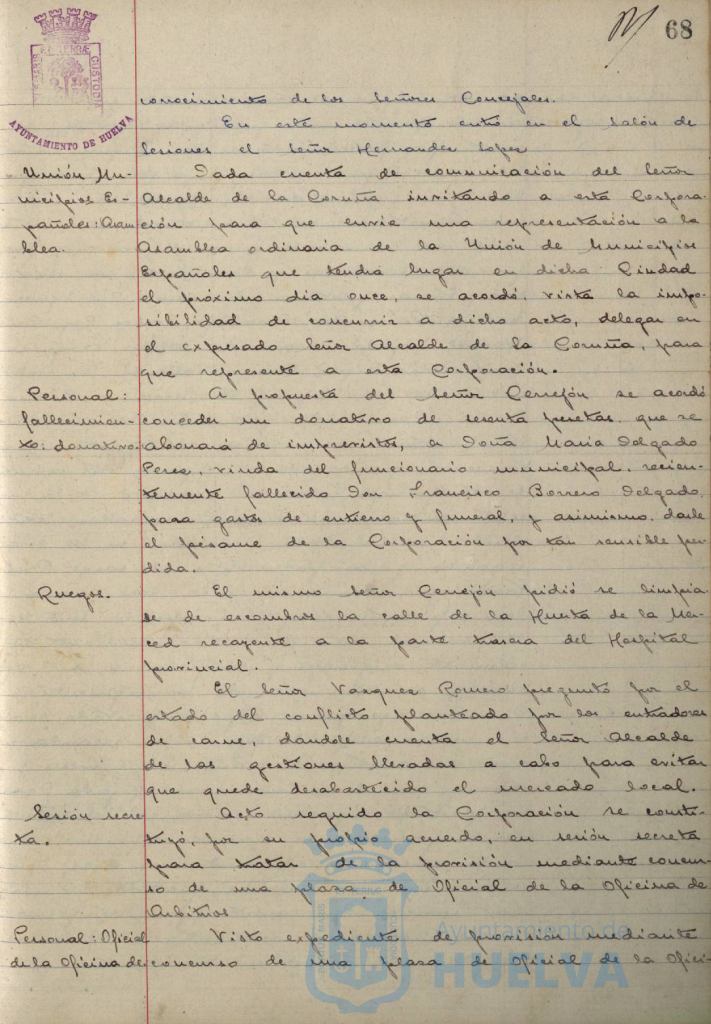 68
PORTUS MARIS ET TERRAE CUSTODIA
AYUNTAMIENTO DE HUELVA
conocimiento de los Señores Concejales.
En este momento entró en el Salón de
Sesiones el Señor Hernandez Lopez
Unión Mu-
nicipios Es-
pañoles: Asam
blea.
Dada cuenta de comunicación del Señor
Alcalde de la Coruña invitando a esta Corpora-
ción para que envie una representación a la
Asamblea ordinaria de la Unión de Municipios
Españoles que tendrá lugar en dicha Ciudad
el próximo dia once, se acordó, vista la impo-
sibilidad de concurrir a dicho acto, delegar en
el expresado Señor Alcalde de la Coruña, para
que represente a esta Corporación.
Personal:
fallecimien-
to: donativo.
A propuesta del Señor Cerrejón se acordó
conceder un donativo de sesenta pesetas, que se
abonará de imprevistos, a Doña Maria Delgado
Perez, viuda del funcionario municipal, recien-
temente fallecido Don Francisco Borrero Delgado,
para gastos de entierro y funeral, y asimismo, darle
el pésame de la Corporación por tan sensible per-
dida.
Ruegos.
El mismo Señor Cerrejón pidió se limpia-
se de escombros la calle de la Huerta de la Mer-
ced recayente a la parte trasera del Hospital
provincial.
El Señor Vazquez Romero preguntó por el
estado del conflicto planteado por los entradores
de carne, dandole cuenta el Señor Alcalde
de las gestiones llevadas a cabo para evitar
que quede desabastecido el mercado local.
Sesión secre
ta.
Acto seguido la Corporación se consti-
tuyó, por su propio acuerdo, en sesión secreta
para tratar de la provisión mediante concur-
so de una plaza de Oficial de la Oficina de
Arbitrios
Personal: Oficial
de la Oficina de
Visto expediente de provisión mediante
concurso de una plaza de Oficial de la Ofici-
Ayuntamiento de
HUELVA